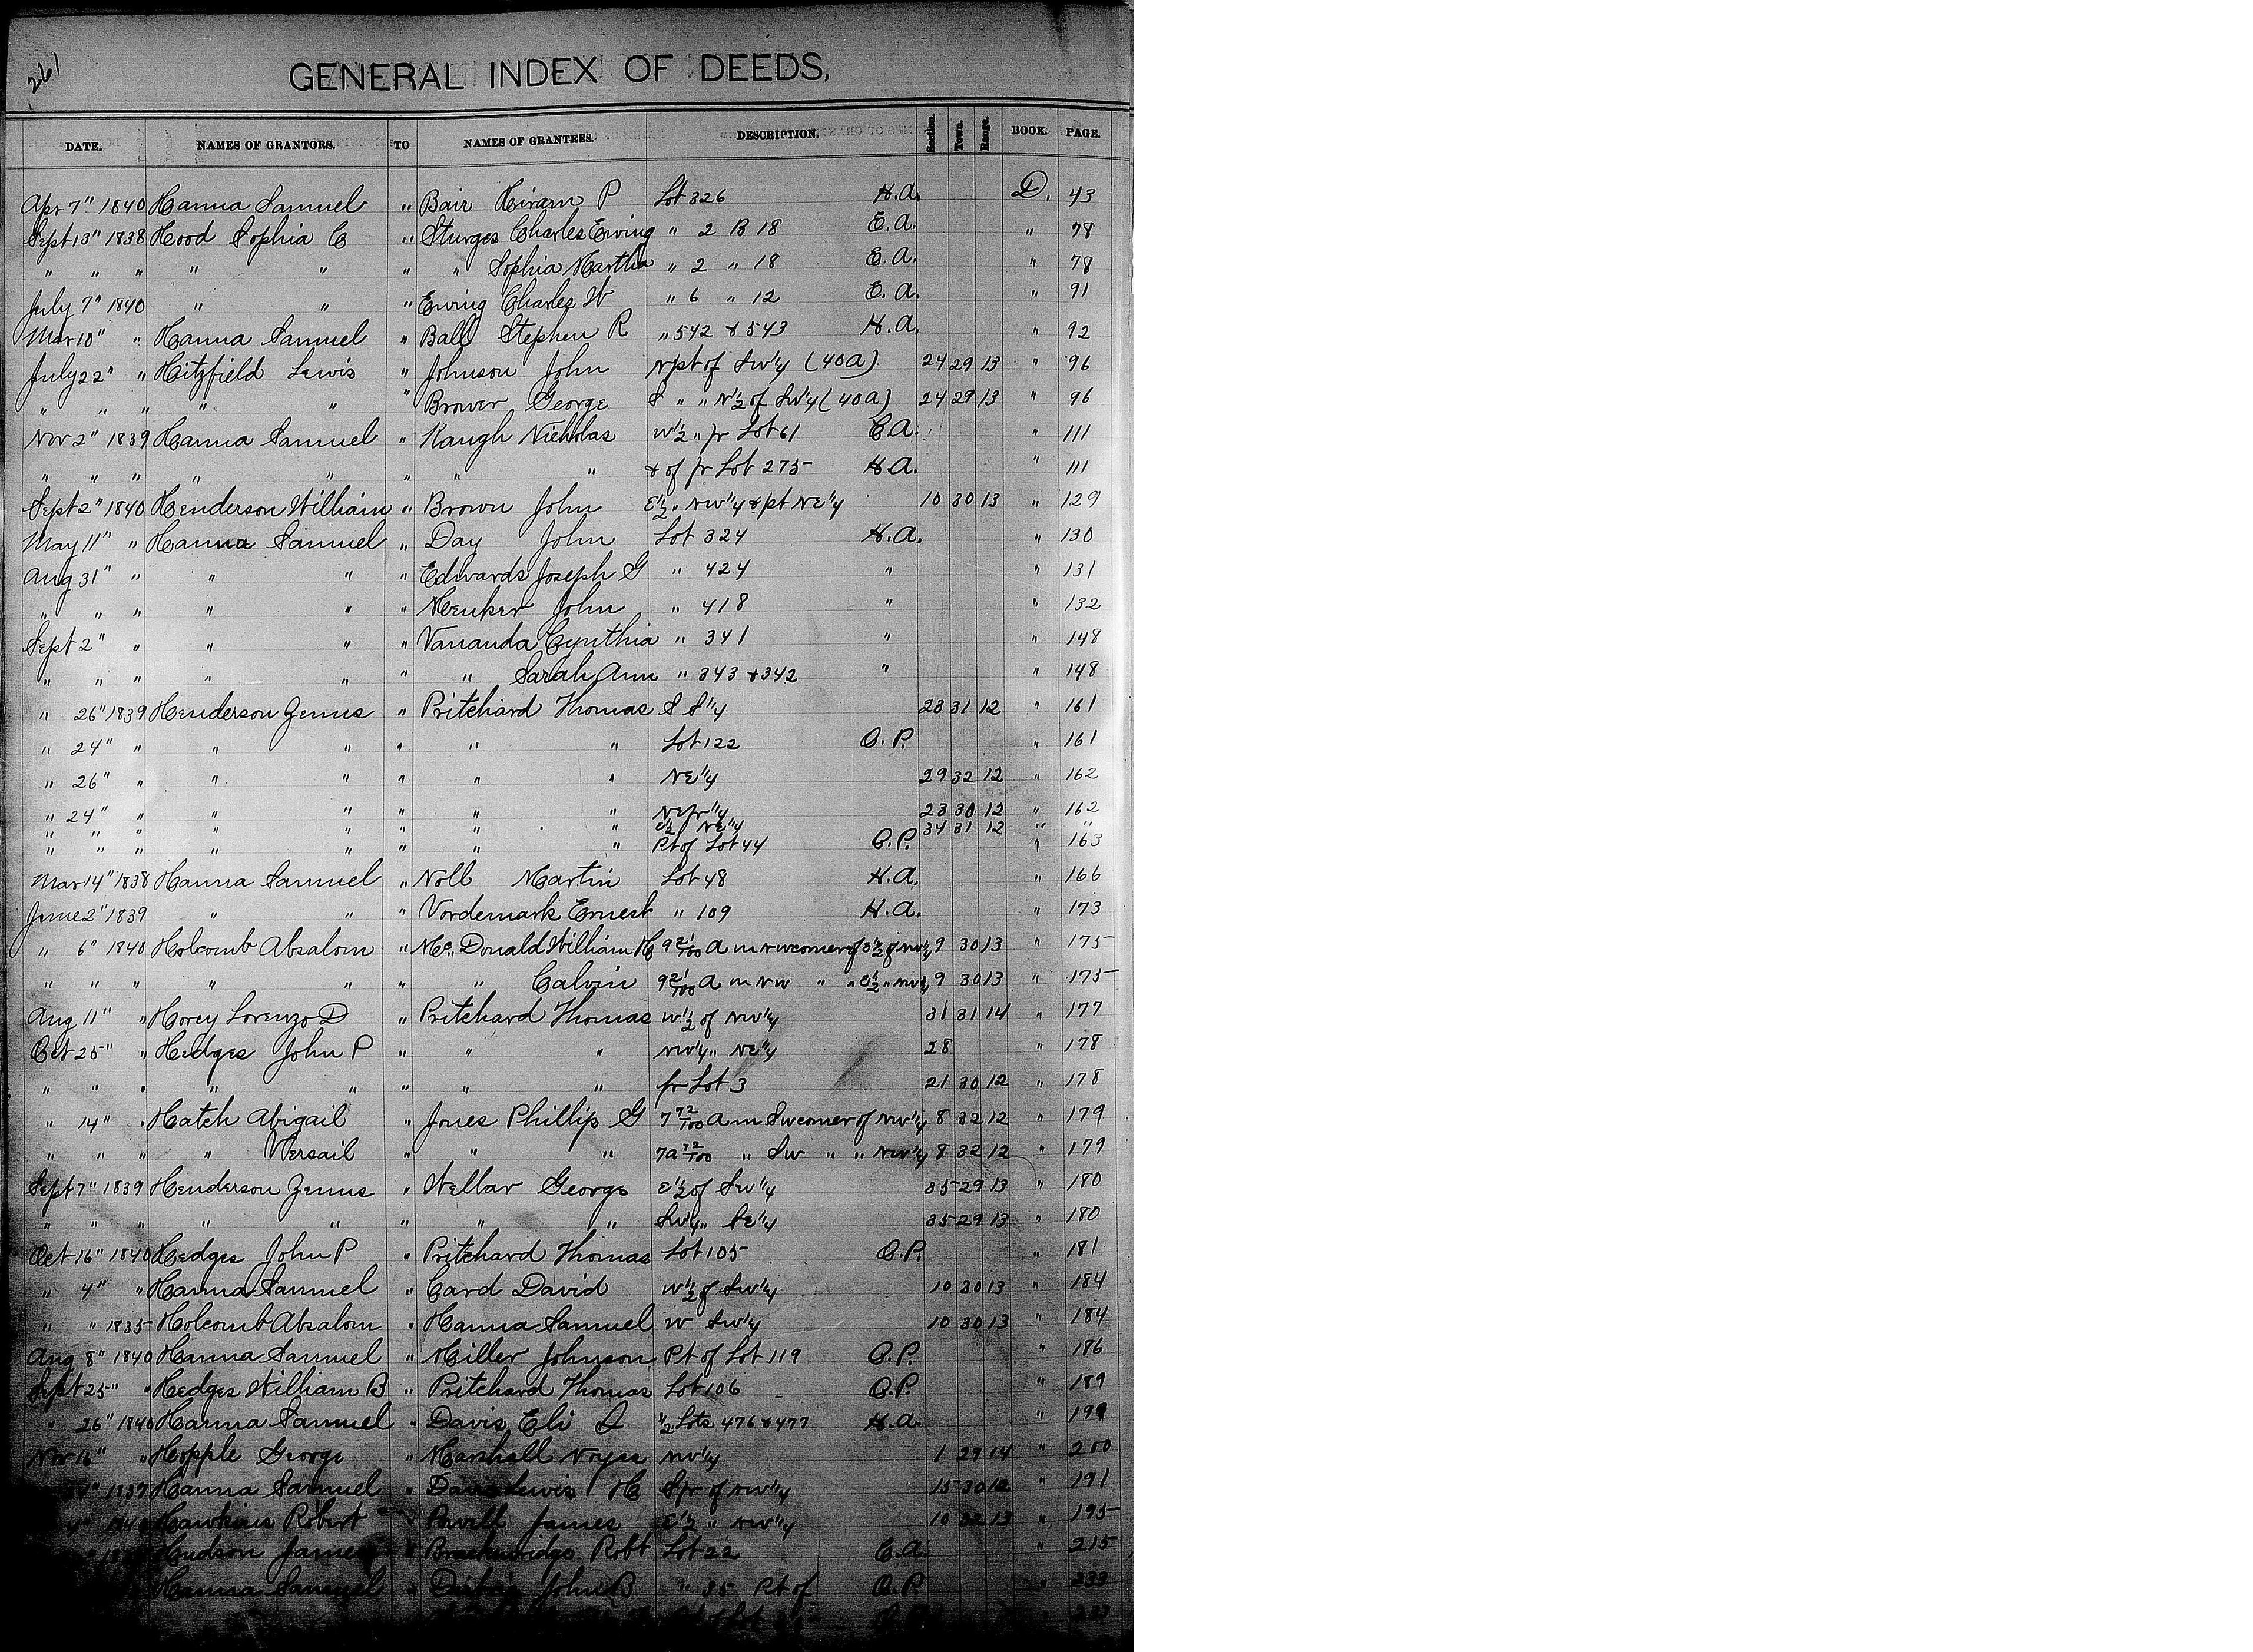 261
GENERAL INDEX OF DEEDS.
DATE. NAMES OF GRANTORS. TO NAMES OF GRANTEES. DESCRIPTION. Section. Town. Range. BOOK. PAGE.
Apr 7" 1840 Hanna Samuel " Bair Hiram P Lot 326 H.A. D. 43
Sept 13" 1838 Hood Sophia C " Sturges Charles Ewing " 2 B 18 E.A. " 78
" " " " " " " Sophia Martha " 2 " 18 E.A. " 78
July 7" 1840 " " " Ewing Charles W " 6 " 12 E.A. " 91
Mar 10" " Hanna Samuel " Ball Stephen R " 542 & 543 H.A. " 92
July 22" " Hitzfield Lewis " Johnson John N pt of SW 1/4 (40A) 24 29 13 " 96
" " " " " " Brower George S " " N 1/2 of SW 1/4 (40A) 24 29 13 " 96
Nov 2" 1839 Hanna Samuel " Kaugh Nicholas W 1/2 " fr Lot 61 C.A. " 111
" " " " " " " " & of fr Lot 275 H.A. " 111
Sept 2" 1840 Henderson William " Brown John E 1/2 " NW 1/4 & pt NE 1/4 10 30 13 " 129
May 11" " Hanna Samuel " Day John Lot 324 H.A. " 130
Aug 31" " " " " Edwards Joseph G " 424 " " 131
" " " " " " Meuker John " 418 " " 132
Sept 2" " " " " Vananda Cynthia " 341 " " 148
" " " " " " " Sarah Ann " 343 & 342 " " 148
" 26" 1839 Henderson Zenus " Pritchard Thomas S S 1/4 23 31 12 " 161
" 24" " " " " " " Lot 122 O.P. " 161
" 26" " " " " " " NE 1/4 29 32 12 " 162
" 24" " " " " " " NE fr 1/4 23 30 12 " 162
" " " " " " " " E 1/2 NE 1/4 34 31 12 " "
" " " " " " " " Pt of Lot 44 O.P. " 163
Mar 14" 1838 Hanna Samuel " Noll Martin Lot 48 H.A. " 166
June 2" 1839 " " " Vordemark Ernest " 109 H.A. " 173
" 6" 1840 Holcomb Absalom " Mc Donald William H 9 21/100 A in NW corner of E 1/2 of NW 1/4 9 30 13 " 175
" " " " " " " Calvin 9 21/100 A in NW " " E 1/2 " NW 1/4 9 30 13 " 175
Aug 11" " Horey Lorenzo D " Pritchard Thomas W 1/2 of NW 1/4 31 31 14 " 177
Oct 25" " Hedges John P " " " NW 1/4 " NE 1/4 28 " 178
" " " " " " " " fr Lot 3 21 30 12 " 178
" 14" " Hatch Abigail " Jones Phillip G 7 72/100 A in SW corner of NW 1/4 8 32 12 " 179
" " " " Versail " " " 7A 72/100 " SW " " NW 1/4 8 32 12 " 179
Sept 7" 1839 Henderson Zenus " Nellar George E 1/2 of SW 1/4 35 29 13 " 180
" " " " " " " " SW 1/4 " SE 1/4 35 29 13 " 180
Oct 16" 1840 Hedges John P " Pritchard Thomas Lot 105 O.P. " 181
" 4" " Hanna Samuel " Card David W 1/2 of SW 1/4 10 30 13 " 184
" " 1835 Holcomb Absalom " Hanna Samuel W SW 1/4 10 30 13 " 184
Aug 8" 1840 Hanna Samuel " Miller Johnson Pt of Lot 119 O.P. " 186
Sept 25" " Hedges William B " Pritchard Thomas Lot 106 O.P. " 189
" 26" 1840 Hanna Samuel " Davis Eli 1/2 Lots 476 & 477 H.A. " 199
Nov 16" " Hopple George " Marshall Noyes NW 1/4 1 29 14 " 200
1837 Hanna Samuel " Davis Lewis H S fr of NW 1/4 15 30 12 " 191
Hawkins Robert " Powell James E 1/2 " NW 1/4 10 32 13 " 195
Hudson James Robt Lot 22 C.A. " 215
Hanna Samuel " John B " 35 Pt of O.P. " 233
233